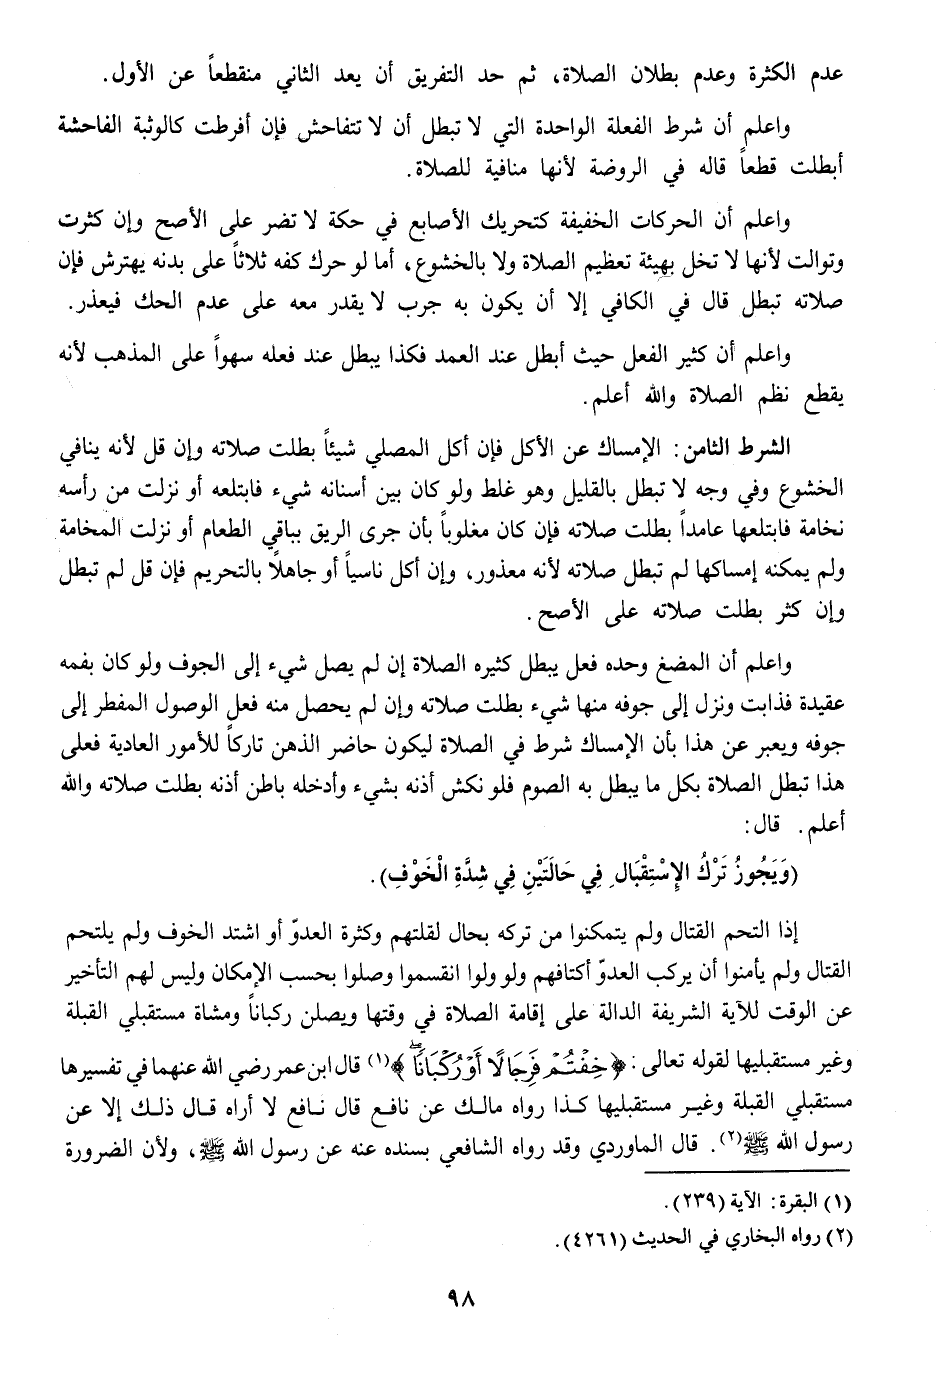 عدم الكثرة وعدم بطلان الصلاة، ثم حد التفريق أن يعد الثاني منقطعاً عن الأول.
واعلم أن شرط الفعلة الواحدة التي لا تبطل أن لا تتفاحش فإن أفرطت كالوثبة الفاحشة
أبطلت قطعاً قاله في الروضة لأنها منافية للصلاة.
واعلم أن الحركات الخفيفة كتحريك الأصابع في حكة لا تضر على الأصح وإن كثرت
وتوالت لأنها لا تخل بهيئة تعظيم الصلاة ولا بالخشوع، أما لو حرك كفه ثلاثاً على بدنه يهترش فإن
صلاته تبطل قال في الكافي إلا أن يكون به جرب لا يقدر معه على عدم الحك فيعذر.
واعلم أن كثير الفعل حيث أبطل عند العمد فكذا يبطل عند فعله سهواً على المذهب لأنه
يقطع نظم الصلاة والله أعلم.
الشرط الثامن: الإمساك عن الأكل فإن أكل المصلي شيئاً بطلت صلاته وإن قل لأنه ينافي
الخشوع وفي وجه لا تبطل بالقليل وهو غلط ولو كان بين أسنانه شيء فابتلعه أو نزلت من رأسه
نخامة فابتلعها عامداً بطلت صلاته فإن كان مغلوباً بأن جرى الريق بباقي الطعام أو نزلت المخامة
ولم يمكنه إمساكها لم تبطل صلاته لأنه معذور، وإن أكل ناسياً أو جاهلاً بالتحريم فإن قل لم تبطل
وإن كثر بطلت صلاته على الأصح.
واعلم أن المضغ وحده فعل يبطل كثيره الصلاة إن لم يصل شيء إلى الجوف ولو كان بفمه
عقيدة فذابت ونزل إلى جوفه منها شيء بطلت صلاته وإن لم يحصل منه فعل الوصول المفطر إلى
جوفه ويعبر عن هذا بأن الإمساك شرط في الصلاة ليكون حاضر الذهن تاركاً للأمور العادية فعلى
هذا تبطل الصلاة بكل ما يبطل به الصوم فلو نكش أذنه بشيء وأدخله باطن أذنه بطلت صلاته والله
أعلم. قال:
(وَيَجُوزُ تَرْكُ الإِسْتِقْبَالِ فِي حَالَتَيْنِ فِي شِدَّةِ الْخَوْفِ).
إذا التحم القتال ولم يتمكنوا من تركه بحال لقلتهم وكثرة العدوّ أو اشتد الخوف ولم يلتحم
القتال ولم يأمنوا أن يركب العدوّ أكتافهم ولو ولوا انقسموا وصلوا بحسب الإمكان وليس لهم التأخير
عن الوقت للآية الشريفة الدالة على إقامة الصلاة في وقتها ويصلن ركباناً ومشاة مستقبلي القبلة
وغير مستقبليها لقوله تعالى: ﴿خِفْتُمْ فَرِجَالًا أَوْ رُكْبَانًا﴾(١) قال ابن عمر رضي الله عنهما في تفسيرها
مستقبلي القبلة وغير مستقبليها كذا رواه مالك عن نافع قال نافع لا أراه قال ذلك إلا عن
رسول الله ﷺ(٢). قال الماوردي وقد رواه الشافعي بسنده عنه عن رسول الله ﷺ، ولأن الضرورة
(١) البقرة: الآية (٢٣٩).
(٢) رواه البخاري في الحديث (٤٢٦١).
٩٨